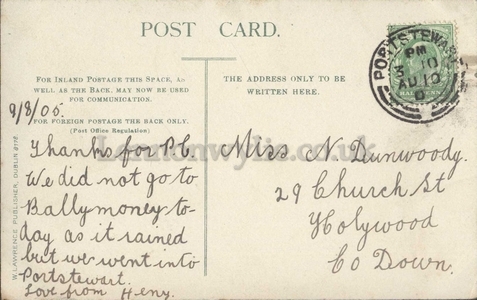 POST CARD.
FOR INLAND POSTAGE THIS SPACE, AS
WELL AS THE BACK, MAY NOW BE USED
FOR COMMUNICATION.
9/8/05.
FOR FOREIGN POSTAGE THE BACK ONLY.
(Post Office Regulation)
Thanks for P.C.
We did not go to
Ballymoney to-
day as it rained
but we went into
Portstewart.
Love from Heny.
W. LAWRENCE, PUBLISHER, DUBLIN
THE ADDRESS ONLY TO BE
WRITTEN HERE.
Miss N Dunwoody.
29 Church St
Holywood
Co Down.
PORTSTEWART
PM
AU 10
Lennonwylie.co.uk